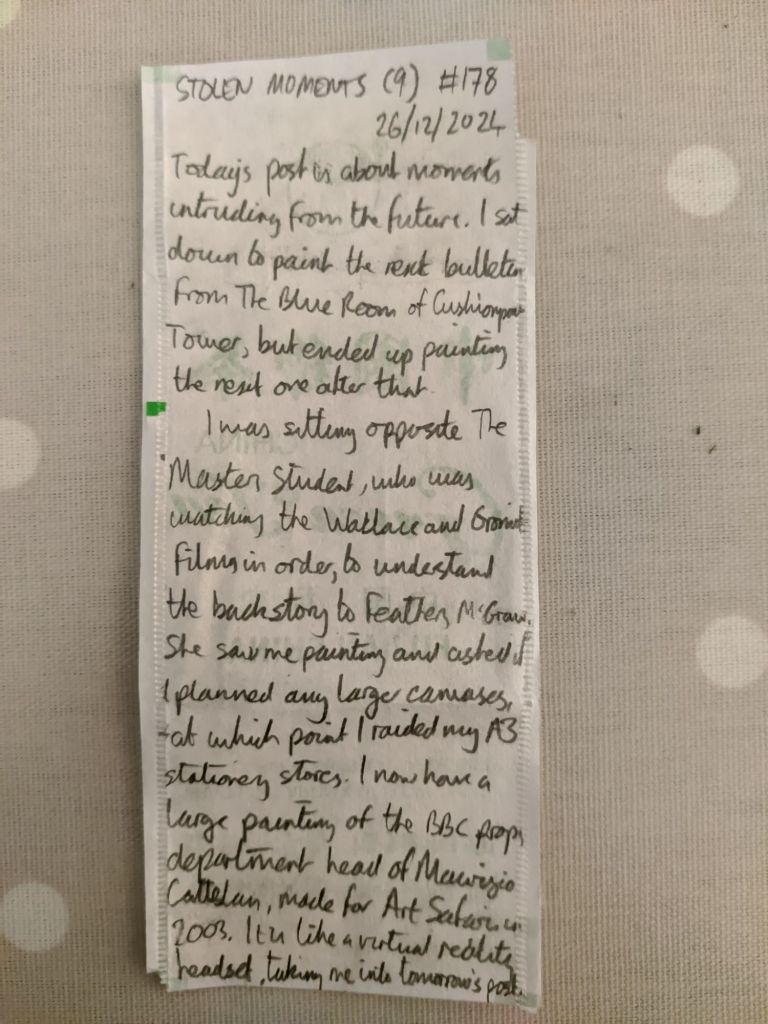 STOLEN MOMENTS (9) #178
26/12/2024
Today's post is about moments
intruding from the future. I sat
down to paint the next bulletin
from The Blue Room of
Tower, but ended up painting
the next one after that.
I was sitting opposite The
Master Student, who was
watching the Wallace and Gromit
films in order, to understand
the backstory to Feathers McGraw.
She saw me painting and asked if
I planned any large canvases,
at which point I raided my A3
stationery stores. I now have a
large painting of the BBC props
department head of Maurizio
Cattelan, made for Art Safari in
2003. It is like a virtual reality
headset, taking me into tomorrow's post.
CHINA